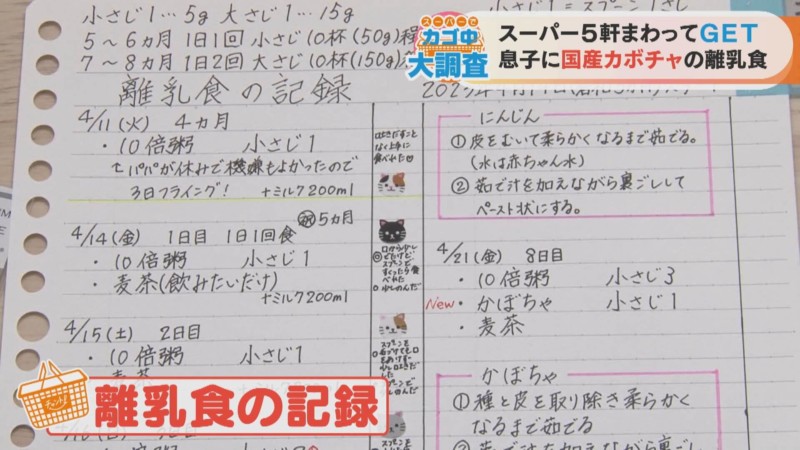 小さじ1…5g 大さじ1…15g
5～6カ月 1日1回 小さじ10杯(50g)
7～8カ月 1日2回 大さじ10杯(150g)
離乳食の記録
4/11(火) 4カ月
・10倍粥 小さじ1
パパが休みで機嫌もよかったので
3日フライング! +ミルク200ml
はきだすこと
なく上手に
食べれた
祝5カ月
4/14(金) 1日目 1日1回食
・10倍粥 小さじ1
・麦茶(飲みたいだけ)
+ミルク200ml
4/15(土) 2日目
・10倍粥 小さじ1
スーパーで
カゴ中
大調査
スーパー5軒まわってGET
息子に国産カボチャの離乳食
にんじん
①皮をむいて柔らかくなるまで茹でる。
(水は赤ちゃん水)
②茹で汁を加えながら裏ごしして
ペースト状にする。
4/21(金) 8日目
・10倍粥 小さじ3
New・かぼちゃ 小さじ1
・麦茶
かぼちゃ
①種と皮を取り除き柔らかく
なるまで茹でる
②茹で汁を加えながら裏ごし
離乳食の記録